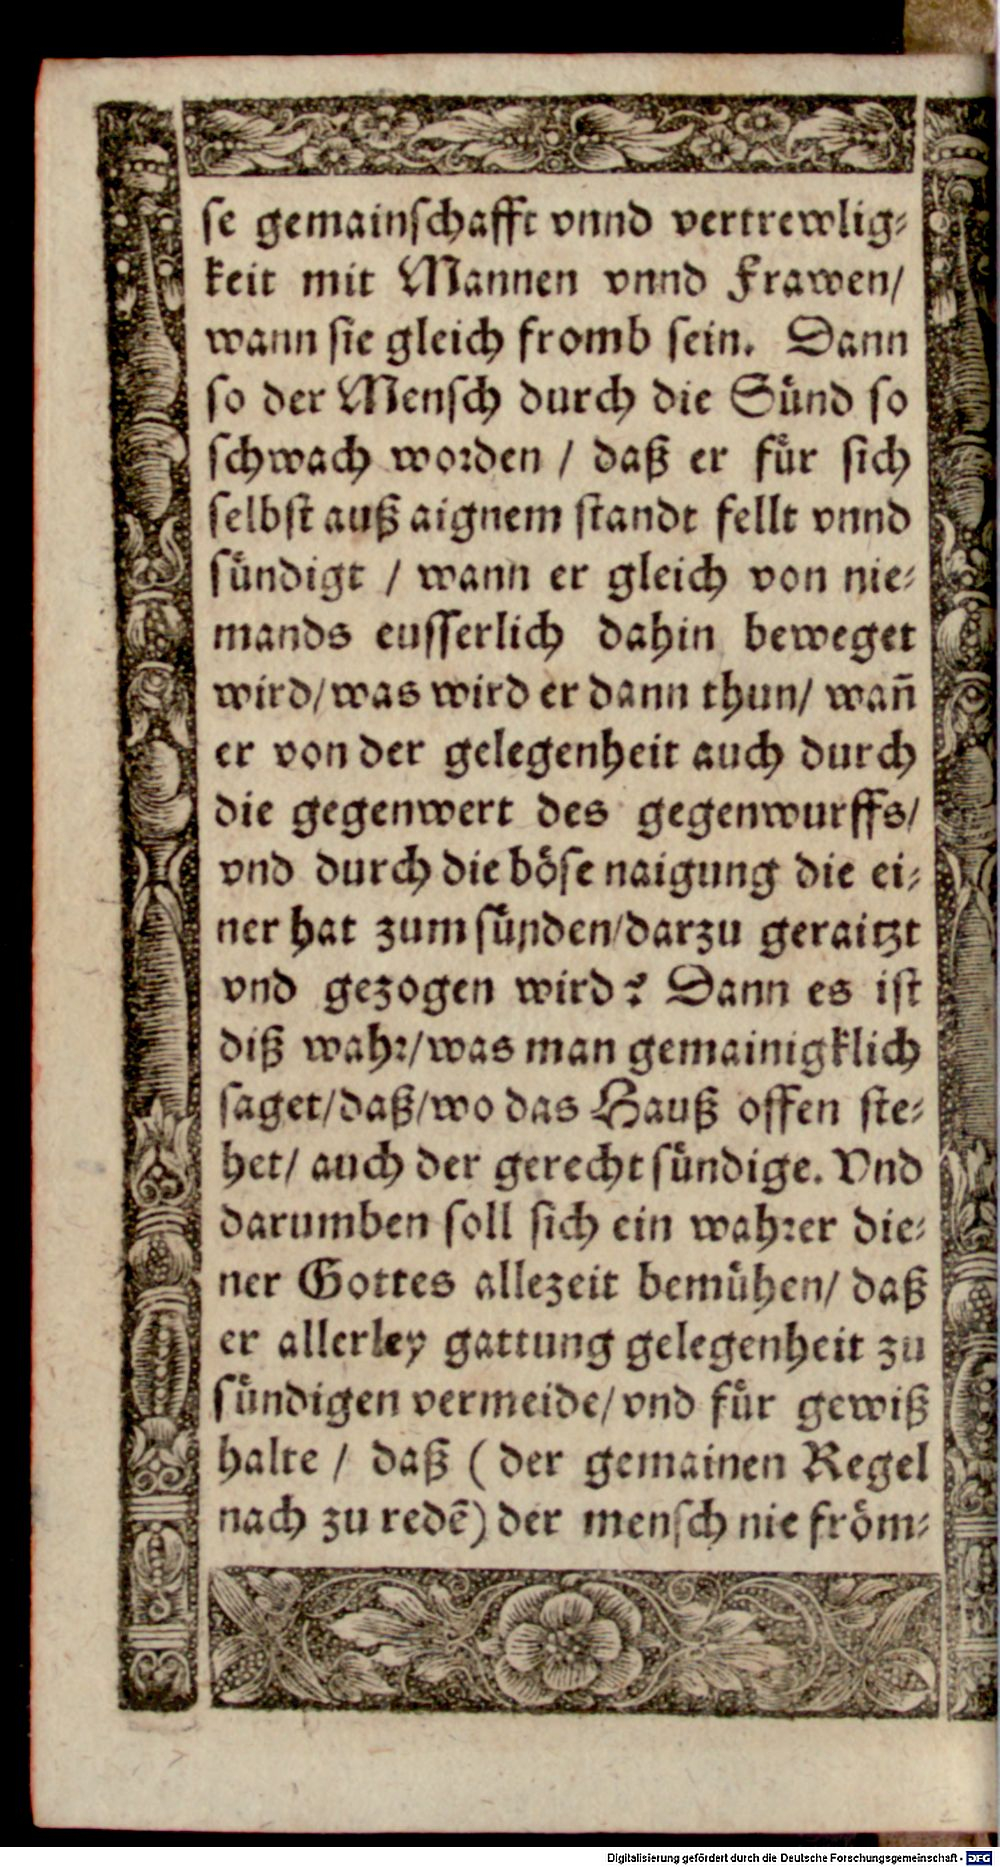 se gemainschafft vnnd vertrewlig⸗
keit mit Mannen vnnd Frawen/
wann sie gleich fromb sein. Dann
so der Mensch durch die Sünd so
schwach worden / daß er für sich
selbst auß aignem standt fellt vnnd
sündigt / wann er gleich von nie⸗
mands eusserlich dahin beweget
wird/was wird er dann thun/ wañ
er von der gelegenheit auch durch
die gegenwert des gegenwurffs/
vnd durch die böse naigung die ei⸗
ner hat zum sünden/darzu geraitzt
vnd gezogen wird? Dann es ist
diß wahr/was man gemainigklich
saget/daß/wo das Hauß offen ste⸗
het/ auch der gerecht sündige. Vnd
darumben soll sich ein wahrer die⸗
ner Gottes allezeit bemühen/ daß
er allerley gattung gelegenheit zu
sündigen vermeide/vnd für gewiß
halte / daß (der gemainen Regel
nach zu redẽ) der mensch nie fröm⸗
Digitalisierung gefördert durch die Deutsche Forschungsgemeinschaft - DFG